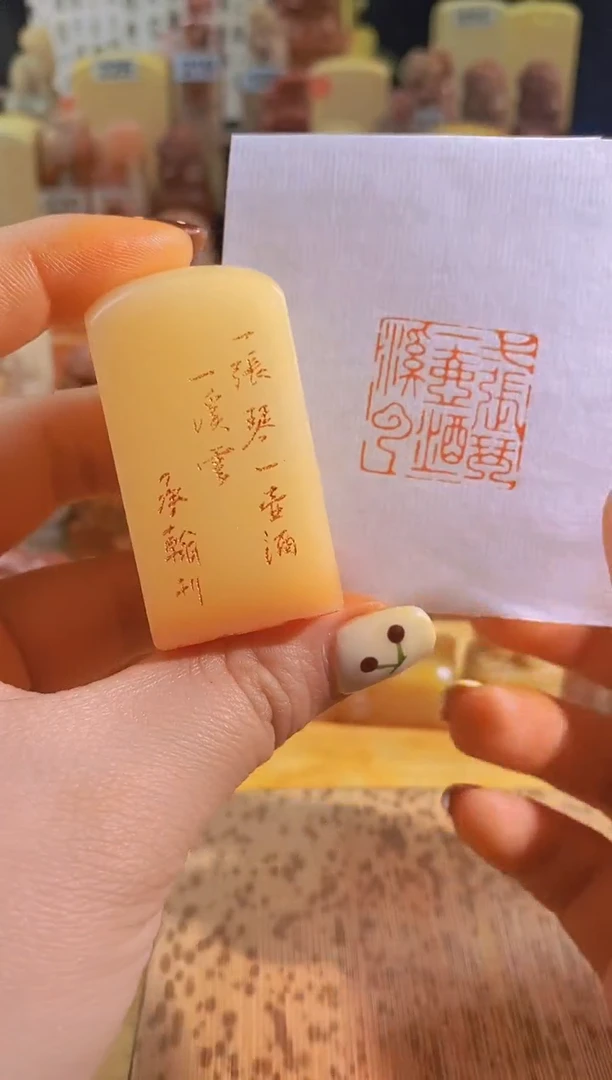 一張琴一壺酒
一溪雲
承翰刊
一張琴
一壺酒
一溪云